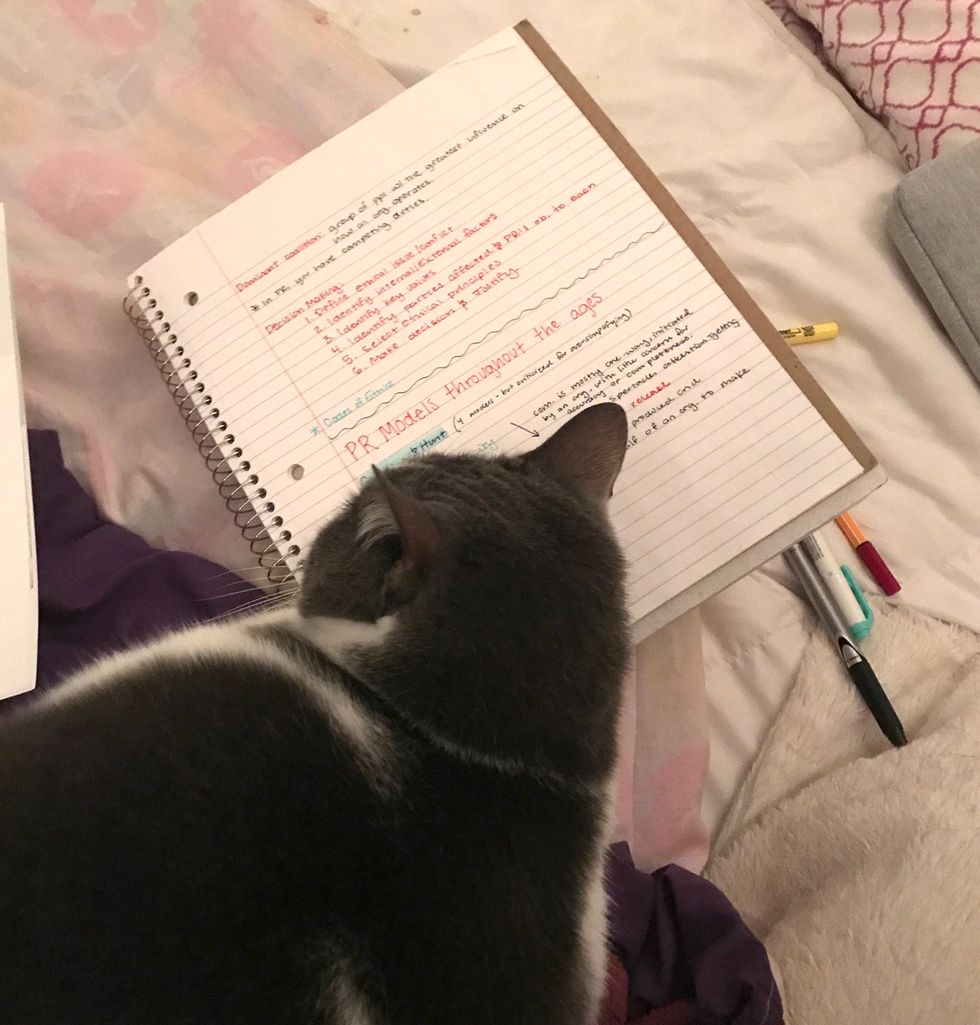 Dominant coalition: group of ppl w/ the greatest influence on
how an org. operates.
* In PR, you have competing duties.
Decision Making:
1. Define ethical issue/conflict
2. Identify internal/External factors
3. Identify key values
4. Identify parties affected & PR's ob. to each
5. Select ethical principles
6. Make decision & Justify
* Codes of Ethics
PR Models throughout the ages
& Hunt (4 models - but criticized for oversimplifying)
com. is mostly one-way, initiated
by an org. with little concern for
accuracy or completeness.
Spectacles attention getting
release
produced and
of an org. to make